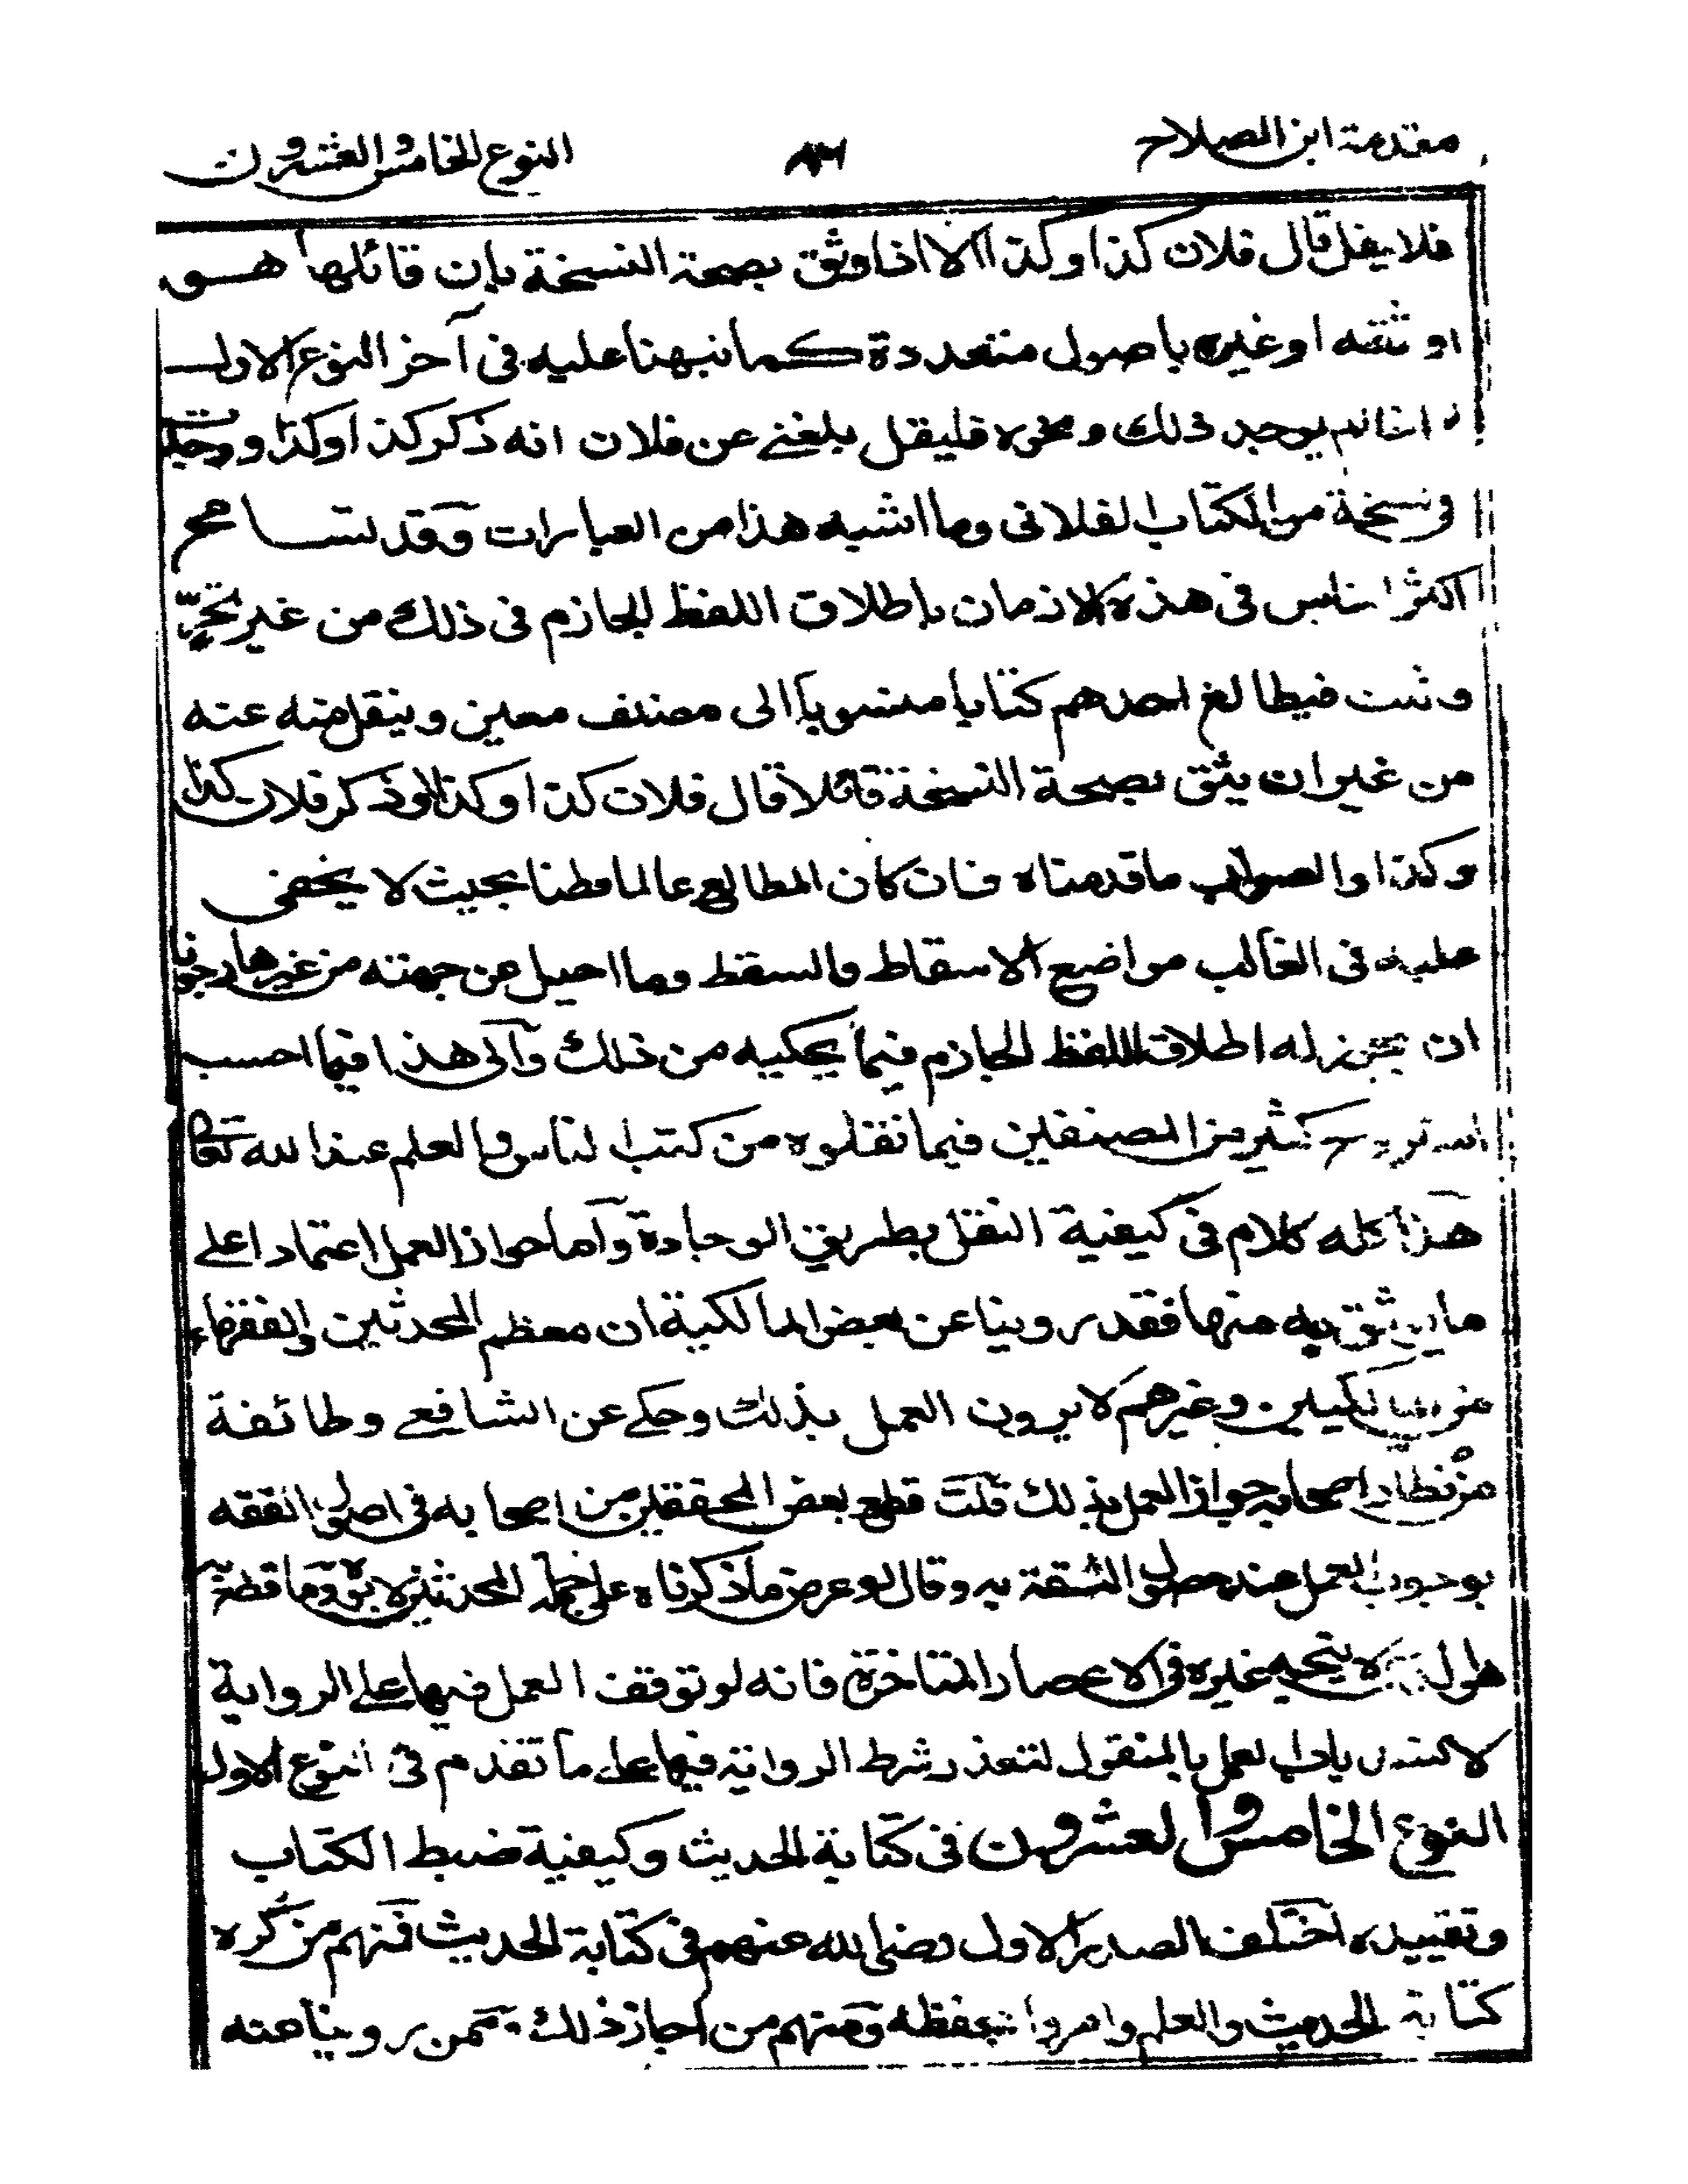 مقدمة ابن الصلاح
٨٣
النوع الخامس والعشرون
فلا يقل قال فلان كذا وكذا الا اذا وثق بصحة النسخة بان قائلها هو
او ثقة او غيره باصول متعددة كما نبهنا عليه فى آخر النوع الاول
يوجد ذلك ونحوه فليقل بلغنى عن فلان انه ذكر كذا وكذا ووجدت
فى نسخة من الكتاب الفلانى وما اشبه هذا من العبارات وقد تسامح
اكثر الناس فى هذه الازمان باطلاق اللفظ الجازم فى ذلك من غير تحرّ
وتثبت فيطالع احدهم كتابا منسوبا الى مصنف معين وينقل منه عنه
من غير ان يثق بصحة النسخة قائلا قال فلان كذا وكذا او ذكر فلان كذا
وكذا والصواب ما قدمناه فان كان المطالع عالما فطنا بحيث لا يخفى
عليه فى الغالب مواضع الاسقاط والسقط وما احيل عن جهته من غيرها رجونا
ان يجوز له اطلاق اللفظ الجازم فيما يحكيه من ذلك والى هذا فيما احسب
استروح كثير من المصنفين فيما نقلوه من كتب الناس والعلم عند الله تعالى
هذا كله كلام فى كيفية النقل بطريق الوجادة واما جواز العمل اعتمادا على
ما يوثق به منها فقد روينا عن بعض المالكية ان معظم المحدثين والفقهاء
من المالكيين وغيرهم لا يرون العمل بذلك وحكى عن الشافعى وطائفة
من نظار اصحابه جواز العمل بذلك قلت قطع بعض المحققين من اصحابه فى اصول الفقه
بوجوب العمل عند حصول الثقة به وقال لو عرض ما ذكرناه على جملة المحدثين لابوه وما قطع به
هو الذى لا يتجه غيره فى الاعصار المتاخرة فانه لو توقف العمل فيها على الرواية
لانسد باب العمل بالمنقول لتعذر شرط الرواية فيها على ما تقدم فى النوع الاول
النوع الخامس والعشرون فى كتابة الحديث وكيفية ضبط الكتاب
وتقييده اختلف الصدر الاول رضى الله عنهم فى كتابة الحديث فمنهم من كره
كتابة الحديث والعلم وامروا بحفظه ومنهم من اجاز ذلك وممن روينا عنه